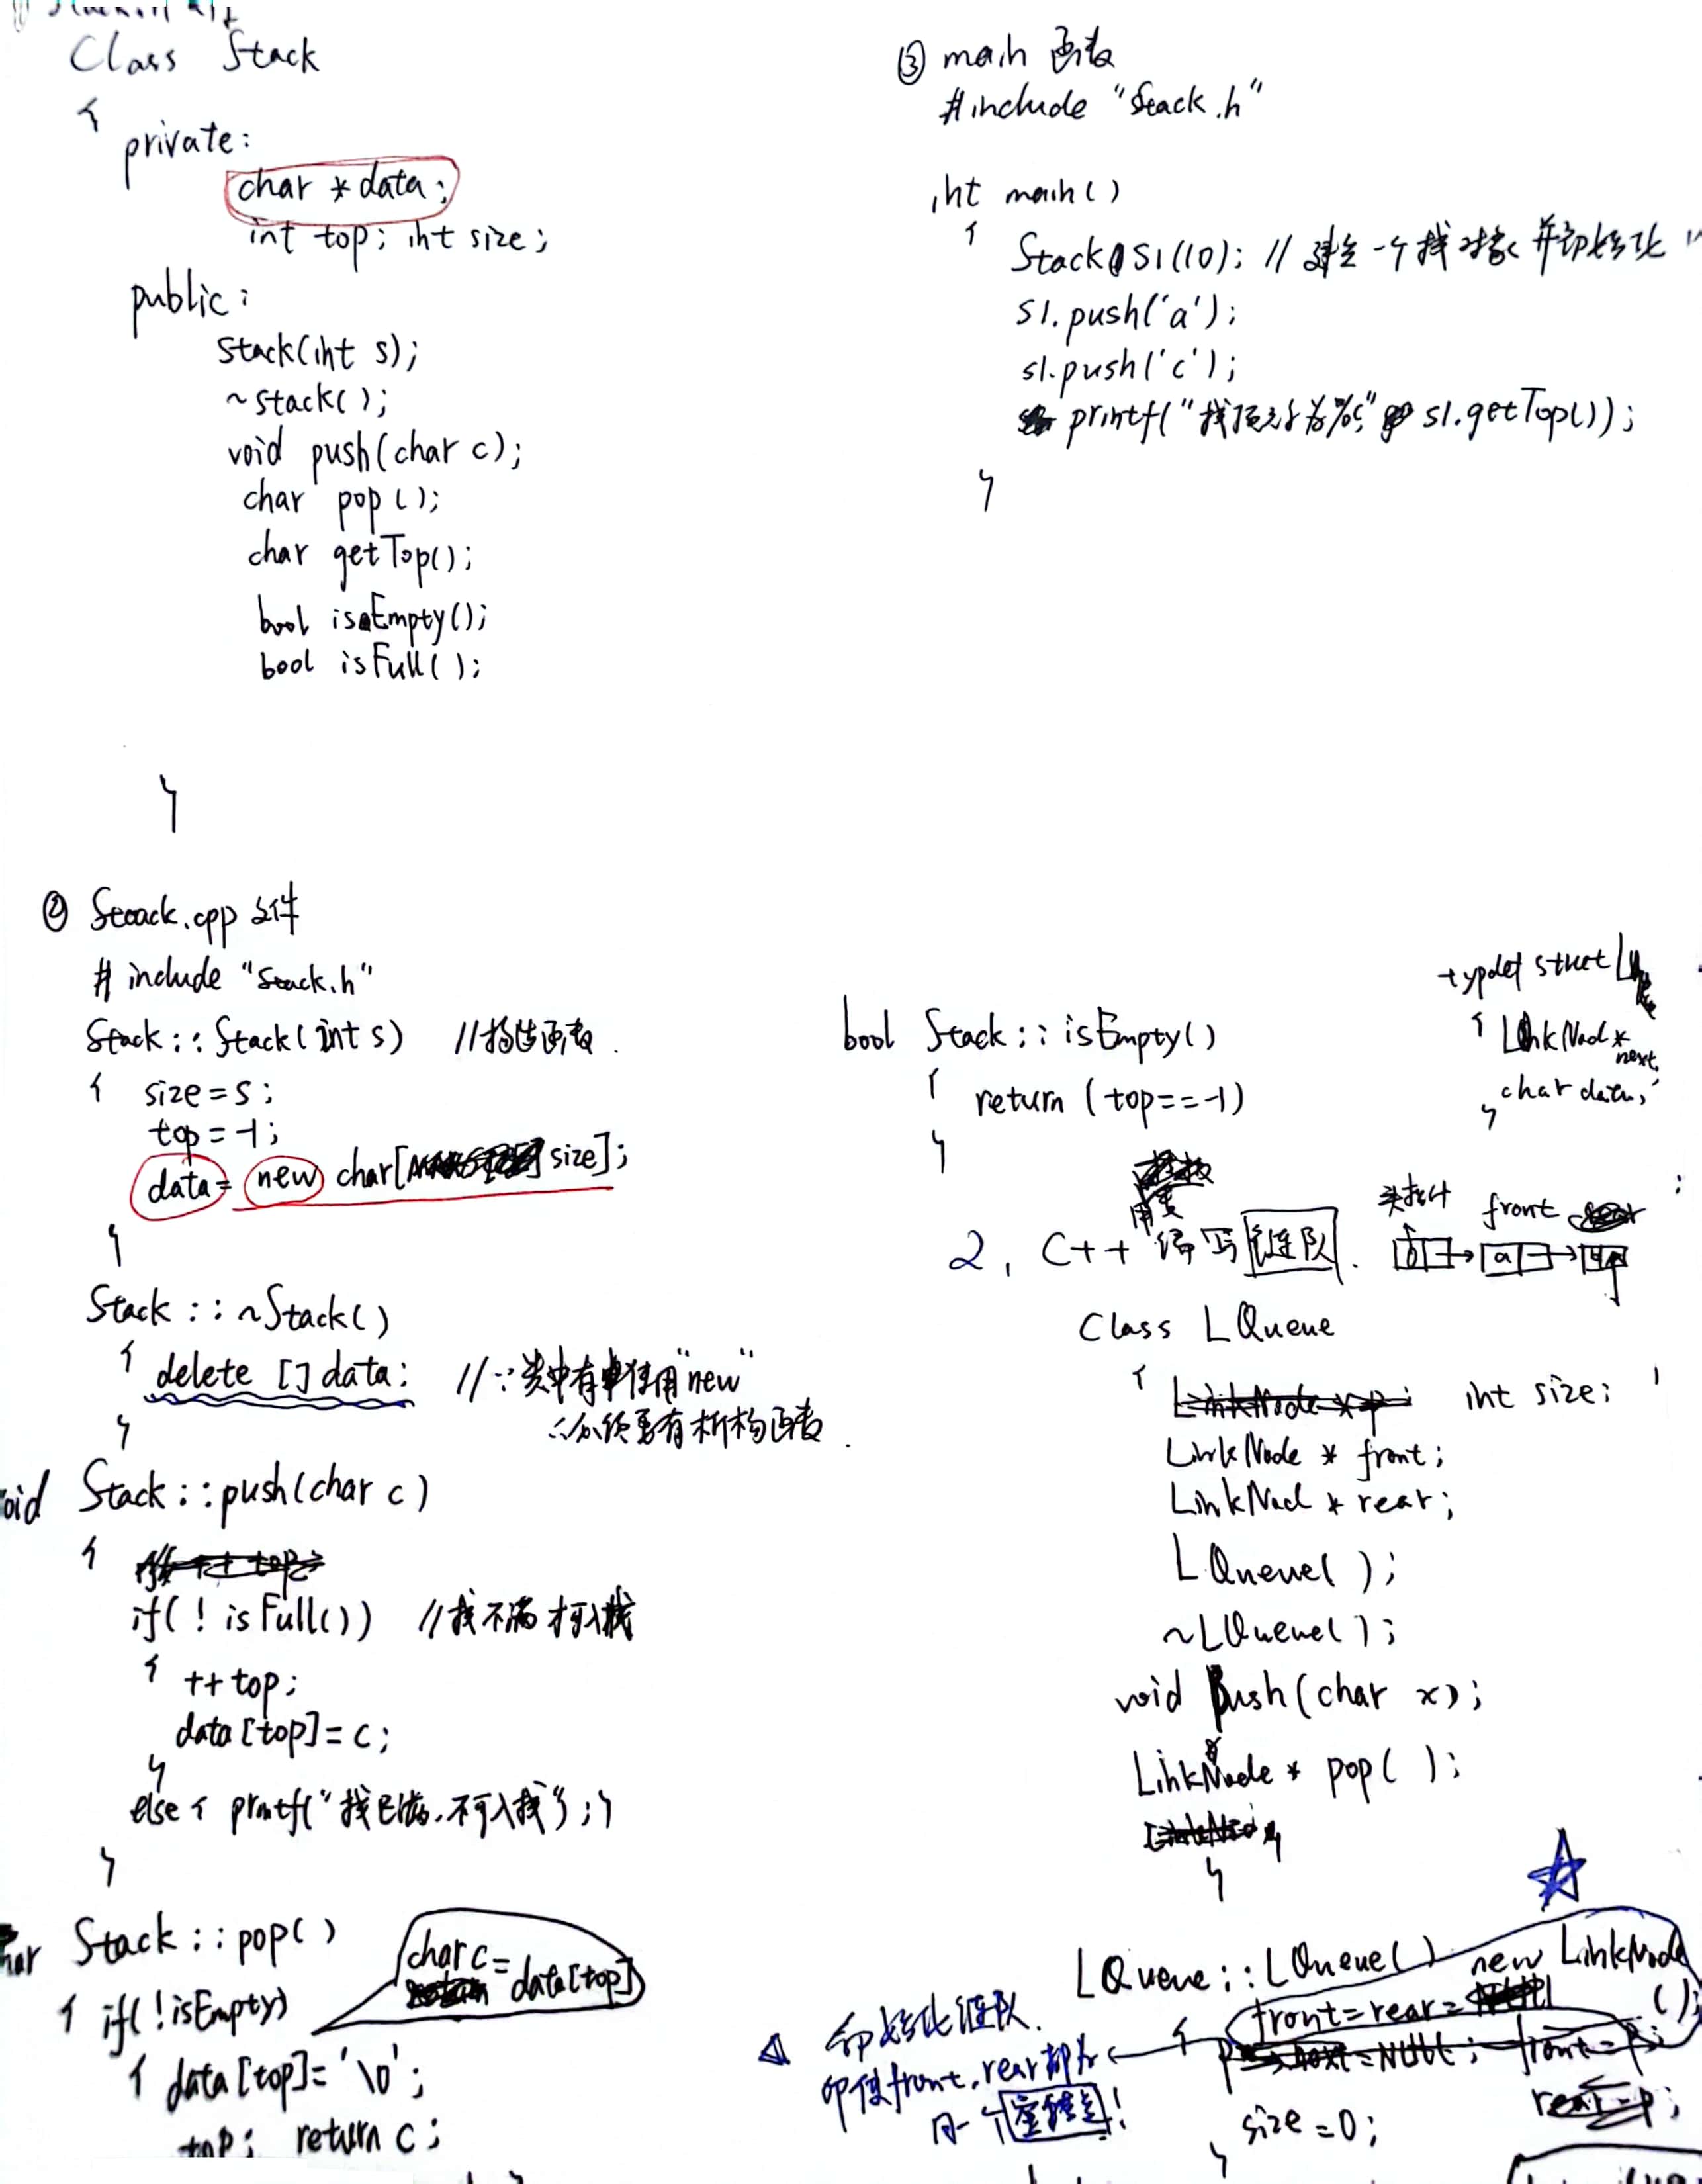 Class Stack
{
private:
char * data;
int top; int size;
public:
Stack(int s);
~stack();
void push(char c);
char pop();
char getTop();
bool isEmpty();
bool isFull();
}
② Stack.cpp 文件
# include "Stack.h"
Stack::Stack(int s) //构造函数.
{ size=s;
top=-1;
data= new char[size];
}
Stack::~Stack()
{ delete []data; //∵类中有使用"new"
∴必须要有析构函数.
}
Stack::push(char c)
{
if(! isFull()) //栈不满才可入栈
{ ++top;
data[top]=c;
}
else { printf("栈已满,不可入栈");}
}
Stack::pop()
char c=
data[top]
{ if(!isEmpty)
{ data[top]='\0';
top; return c;
③ main 函数
#include "Stack.h"
int main()
{ Stack S1(10); //建立一个栈对象并初始化
S1.push('a');
s1.push('c');
printf("栈顶元素为%c", s1.getTop());
}
typdef struct
{ LinkNod*
next,
char data;
}
bool Stack::isEmpty()
{
return (top==-1)
}
用类
2. C++ 编写链队.
头指针 front
a
Class LQueue
{ int size;
LinkNode * front;
LinkNod * rear;
LQueue( );
~LQueue( );
void push(char x);
LinkNode * pop( );
}
LQueue::LQueue()
{ front=rear= new LinkNode
();
size=0;
}
初始化链队.
即使front,rear都为
同一个空结点!